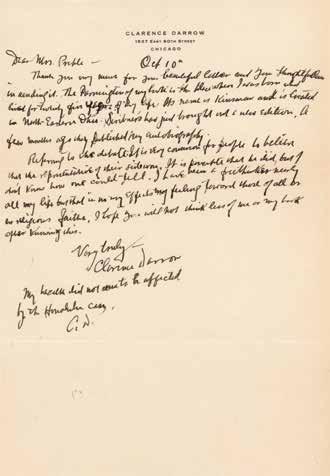 CLARENCE DARROW
1537 EAST 60TH STREET
CHICAGO
Oct 10th
Dear Mrs.
Thank you very much for your beautiful letter and your thoughtfulness
in sending it. The Farmington of my book is the place where I was born and
lived for twenty five years of my life. Its name is Kinsman and is located
in North Eastern Ohio. has just brought out a new edition. A
few months ago they published my autobiography.
Referring to the debate it is very common for people to believe
that the of their side won. It is possible that he did, but I
did know how one could tell. I have been a freethinker nearly
all my life but that in no way affects my feeling toward those of all or
no religious faiths. I hope you will not think less of me or my book
after knowing this.
Very truly
Clarence Darrow
My health did not seem to be affected
by the Honolulu case.
C. D.